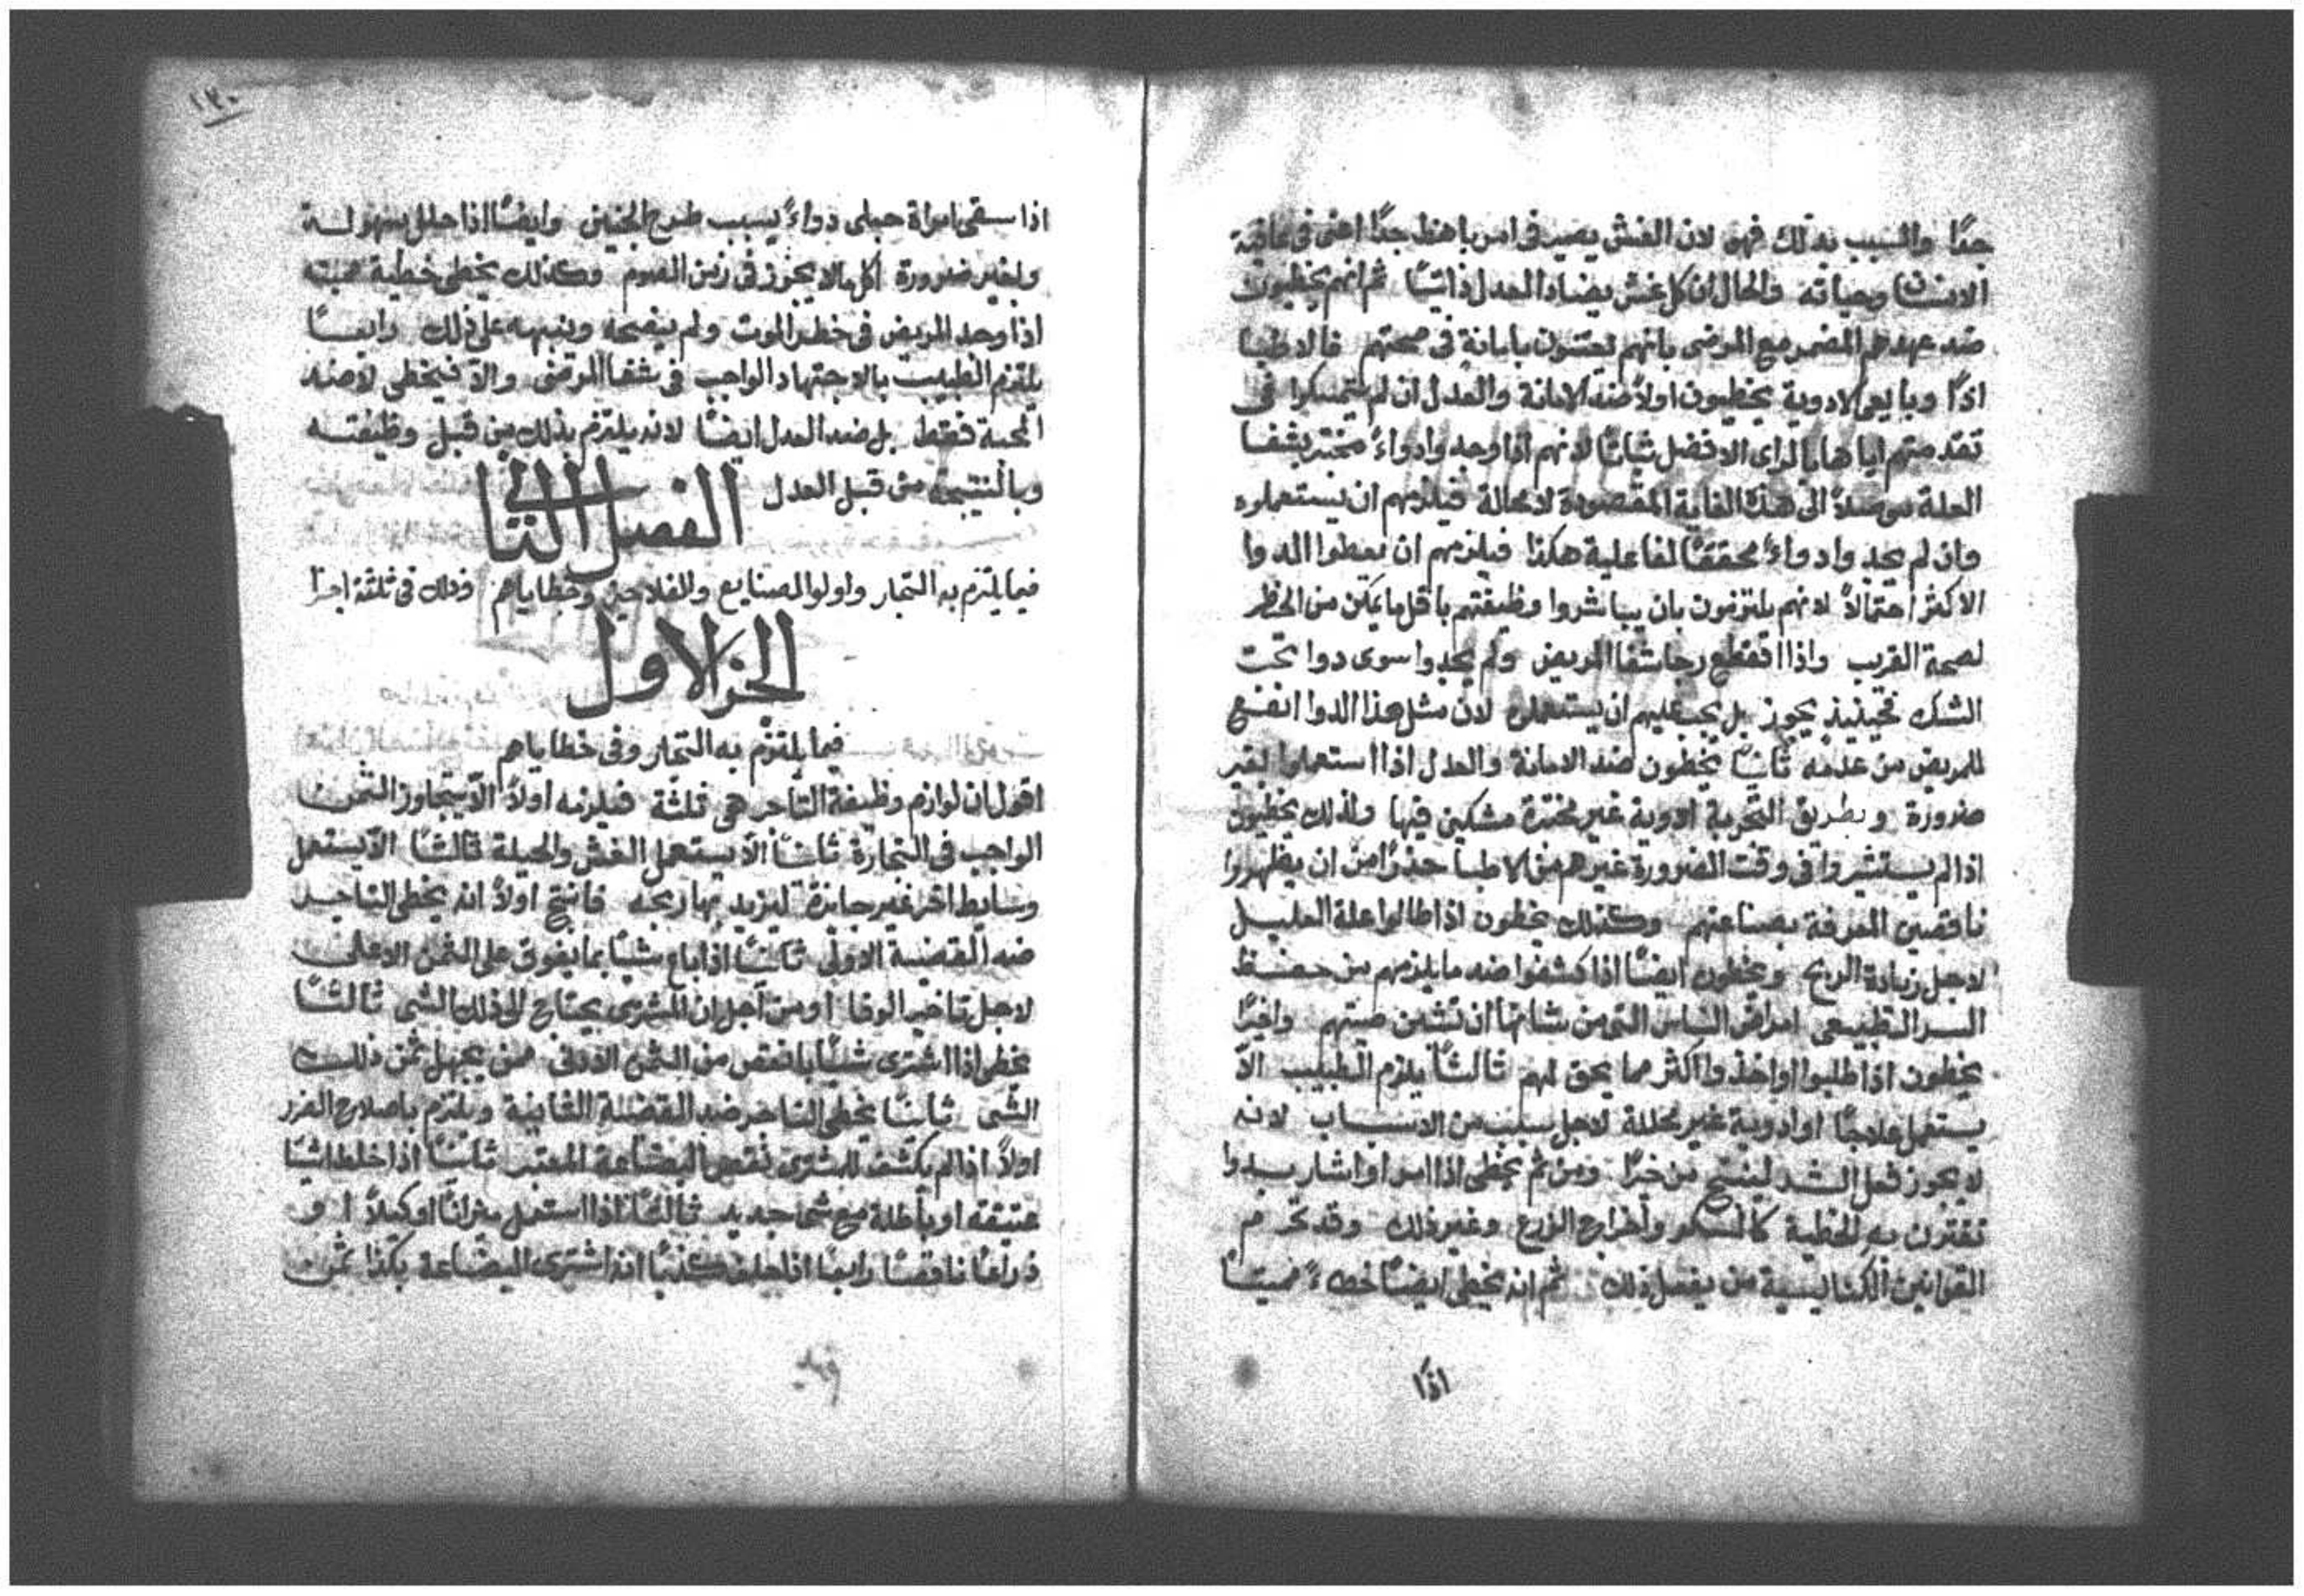 جدًا والسبب بذلك فهو لان الغش يصير فى امر باهظ جدًا اعنى فى عافية
الانسان وحياته والحال ان كل غش يضاد العدل ذاتيًا ثم انهم يخطيون
ضد عهدهم المضمر مع المرضى بانهم يعتنون بامانة فى صحتهم فالاطبا
اذًا وبايعى الادوية يخطيون اولاً ضد الامانة والعدل ان لم يتمسكوا فى
تقدمتهم اياها بالراى الافضل ثباتًا لانهم اذا وجدوا دواءً مختبر بشفا
العلة موصلاً الى هذه الغاية المقصودة لا محالة فيلزمهم ان يستعملوه
وان لم يجدوا دواءً محققًا لفاعلية هكذا فيلزمهم ان يعطوا الدوا
الاكثر احتمالاً لانهم يلتزمون بان يباشروا وظيفتهم باقل ما يمكن من الخطر
لصحة القريب واذا انقطع رجا شفا المريض ولم يجدوا سوى دوا تحت
الشك فحينيذ يجوز بل يجب عليهم ان يستعملوه لان مثل هذا الدوا انفع
للمريض من عدمه ثانيًا يخطون ضد الامانة والعدل اذا استعملوا بغير
ضرورة وبطريق التجربة ادوية غير مختبرة مشكين فيها ولذلك يخطيون
اذا لم يستشيروا فى وقت الضرورة غيرهم من الاطبا حذرًا من ان يظهروا
ناقصين المعرفة بصناعتهم وكذلك يخطون اذا طالوا علة العليل
لاجل زيادة الربح ويخطون ايضًا اذا كشفوا ضد ما يلزمهم من حفظ
السر الطبيعى امراض الناس التى من شانها ان تشين صيتهم واخيرًا
يخطون اذا طلبوا او اخذوا اكثر مما يحق لهم ثالثًا يلزم الطبيب الاّ
يستعمل علاجًا او ادوية غير محللة لاجل سبب من الاسباب لانه
لا يجوز فعل الشر لينتج من خيرًا ومن ثم يخطى اذا امر او اشار بدوا
تقترن به الخطية كالسكر واخراج الزرع وغير ذلك وقد تحرم
القوانين الكنايسية من يفعل ذلك ثم انه يخطى ايضًا خطاءً مميتًا
اذًا
١٣٠
اذا سقى امراة حبلى دواءً يسبب طرح الجنين وايضًا اذا حلل بسهولة
ولغير ضرورة اكل ما لا يجوز فى زمن الصوم وكذلك يخطى خطية مميته
اذا وجد المريض فى خطر الموت ولم ينصحه وينبهه على ذلك رابعًا
يلتزم الطبيب بالاجتهاد الواجب فى شفا المرضى والاّ فيخطى لا ضد
المحبة فقط بل ضد العدل ايضًا لانه يلتزم بذلك من قبل وظيفته
وبالنتيجة من قبل العدل
الفصل الثانى
فيما يلتزم به التجار واولوا الصنايع والفلاحين وخطاياهم وذلك فى ثلثة اجزا
الجز الاول
فيما يلتزم به التجار وفى خطاياهم
اقول ان لوازم وظيفة التاجر هى ثلثة فيلزمه اولاً الاّ يتجاوز الثمن
الواجب فى التجارة ثانيًا الاّ يستعمل الغش والحيلة ثالثًا الاّ يستعمل
وسايط اخر غير جايزة ليزيد بها ربحه فانتج اولاً انه يخطى التاجر
ضد القضية الاولى ثانيًا اذا باع شيًا بما يفوق على الثمن الاعلى
لاجل تاخير الوفا او من اجل ان المشترى يحتاج الى ذلك الشى ثالثًا
يخطى اذا اشترى شيًا بانقص من الثمن الادنى ممن يجهل ثمن ذلك
الشى ثانيًا يخطى التاجر ضد القضية الثانية ويلتزم باصلاح الضرر
اولاً اذا لم يكشف للمشترى نقص البضاعة المعتبر ثانيًا اذا خلط اشيًا
عتيقه او باطلة مع شى جديد ثالثًا اذا استعمل ميزانًا او كيلاً او
ذراعًا ناقصًا رابعًا اذا حلف كذبًا انه اشترى البضاعة بكذا ثمن